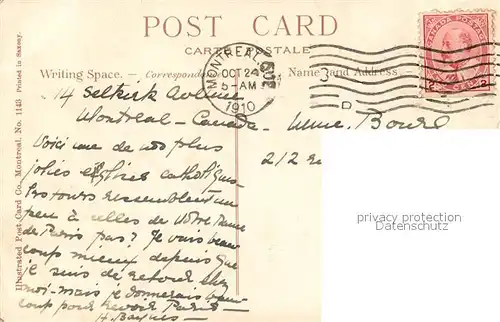 POST CARD
CARTE POSTALE
Writing Space. — Correspondance
Name and Address.
MONTREAL
OCT 24
5-AM
1910
CANADA POSTAGE
2 2
D
14 Selkirk Avenue
Montreal - Canada -
Mme. Bourl
2/2
Voici une de nos plus
jolies églises catholiques
les tours ressemblent un
peu à celles de Notre Dame
de Paris pas? Je vais beau
coup mieux depuis que
je suis de retour chez
moi - mais je donnerais beau
coup pour revoir Paris -
H. Baynes -
Illustrated Post Card Co., Montreal. No. 1143 Printed in Saxony.
privacy protection
Datenschutz